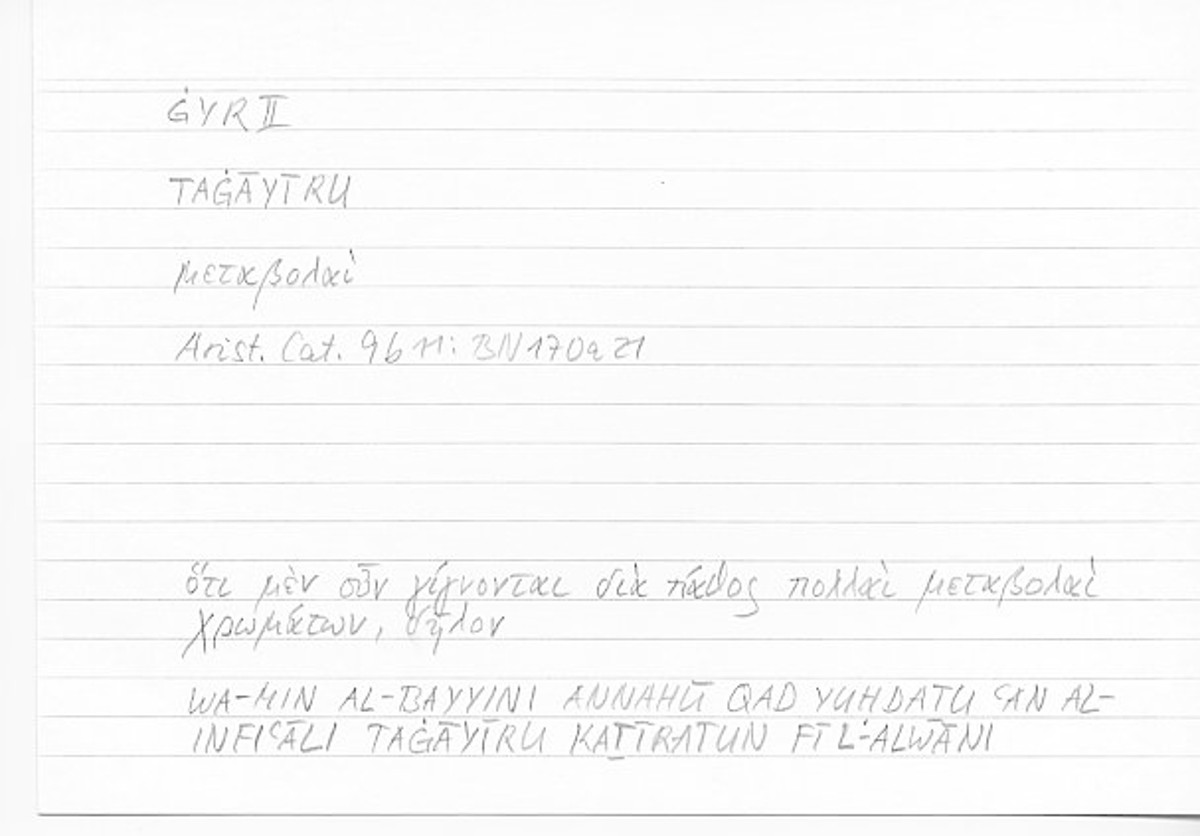 ĠYR II
TAĠĀYĪRU
μεταβολαὶ
Arist. Cat. 9b11: BN170a21
ὅτι μὲν οὖν γίγνονται διὰ πάθος πολλαὶ μεταβολαὶ
χρωμάτων, δῆλον
WA-MIN AL-BAYYINI ANNAHŪ QAD YUHDATU ʿAN AL-
INFIʿĀLI TAĠĀYĪRU KAṮĪRATUN FĪ L-ALWĀNI